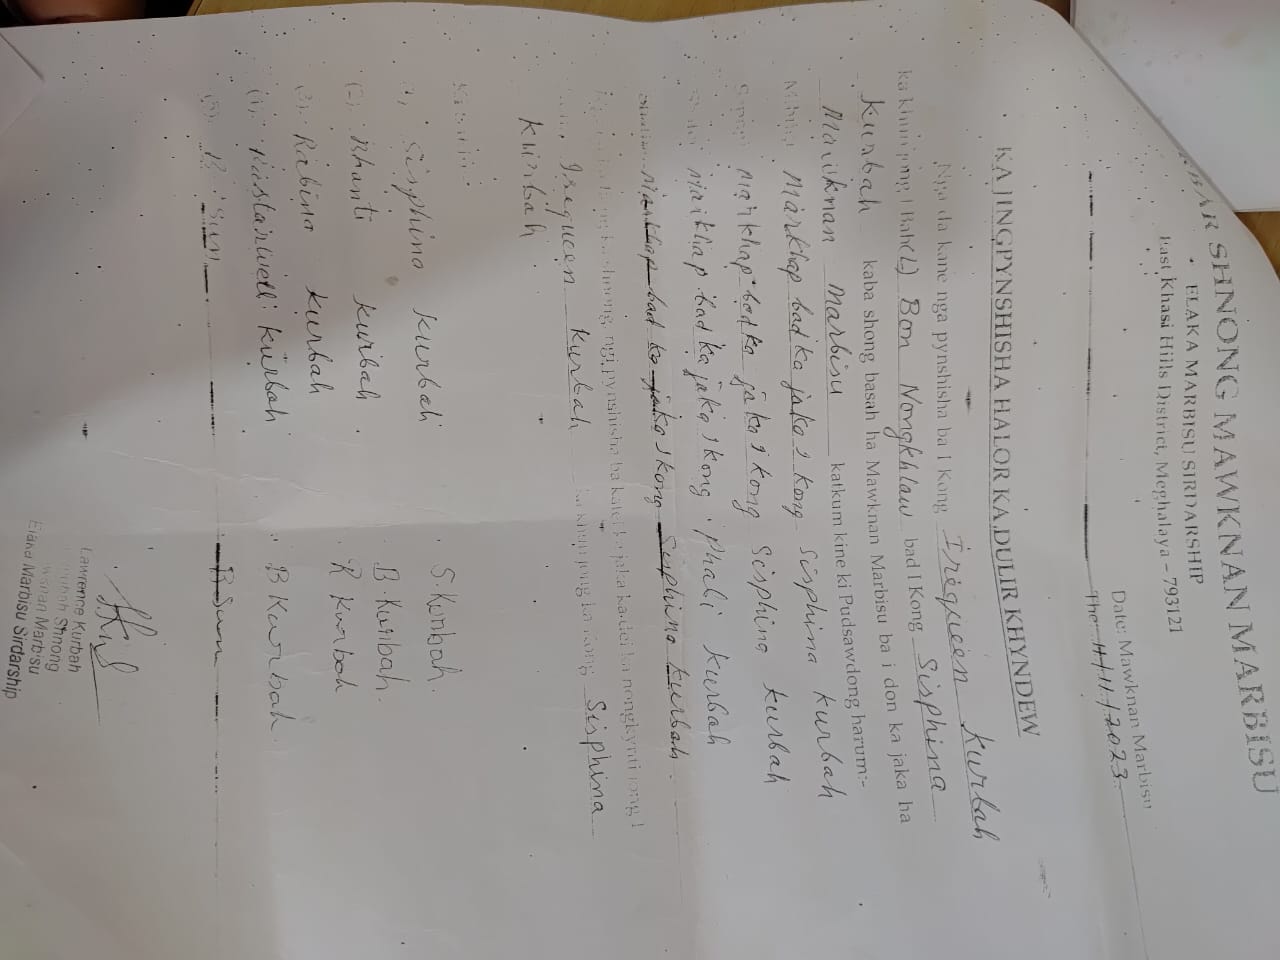 SHNONG MAWKNAN MARBISU
ELAKA MARBISU SIRDARSHIP
East Khasi Hills District, Meghalaya – 793121
Date: Mawknan Marbisu
The 11/11/2023
KA JINGPYNSHISHA HALOR KA DULIR KHYNDEW
Nga da kane nga pynshisha ba i Kong Irequeen Kurbah
ka khun jong I Bah(L) Bon Nongkhlaw bad I Kong Sisphina
Kurbah kaba shong basah ha Mawknan Marbisu ba i don ka jaka ha
Mawknan Marbisu katkum kine ki Pudsawdong harum:-
Markhap bad ka jaka i kong Sisphina Kurbah
Markhap bad ka jaka i kong Sisphina Kurbah
Markhap bad ka jaka i kong Phali Kurbah
Markhap bad ka jaka i kong Sisphina Kurbah
ngi pynshisha ba katei ka jaka ka dei ka nongkynti jong I
Irequeen Kurbah ka khun jong ka kong Sisphina
Kurbah
1, Sisphina Kurbah S. Kurbah.
(2). Bhanti Kurbah. B. Kurbah.
(3). Rabina Kurbah R Kurbah
Kurbah. B Kurbah.
Lawrence Kurbah
Shnong
Marbisu
Elaka Marbisu Sirdarship